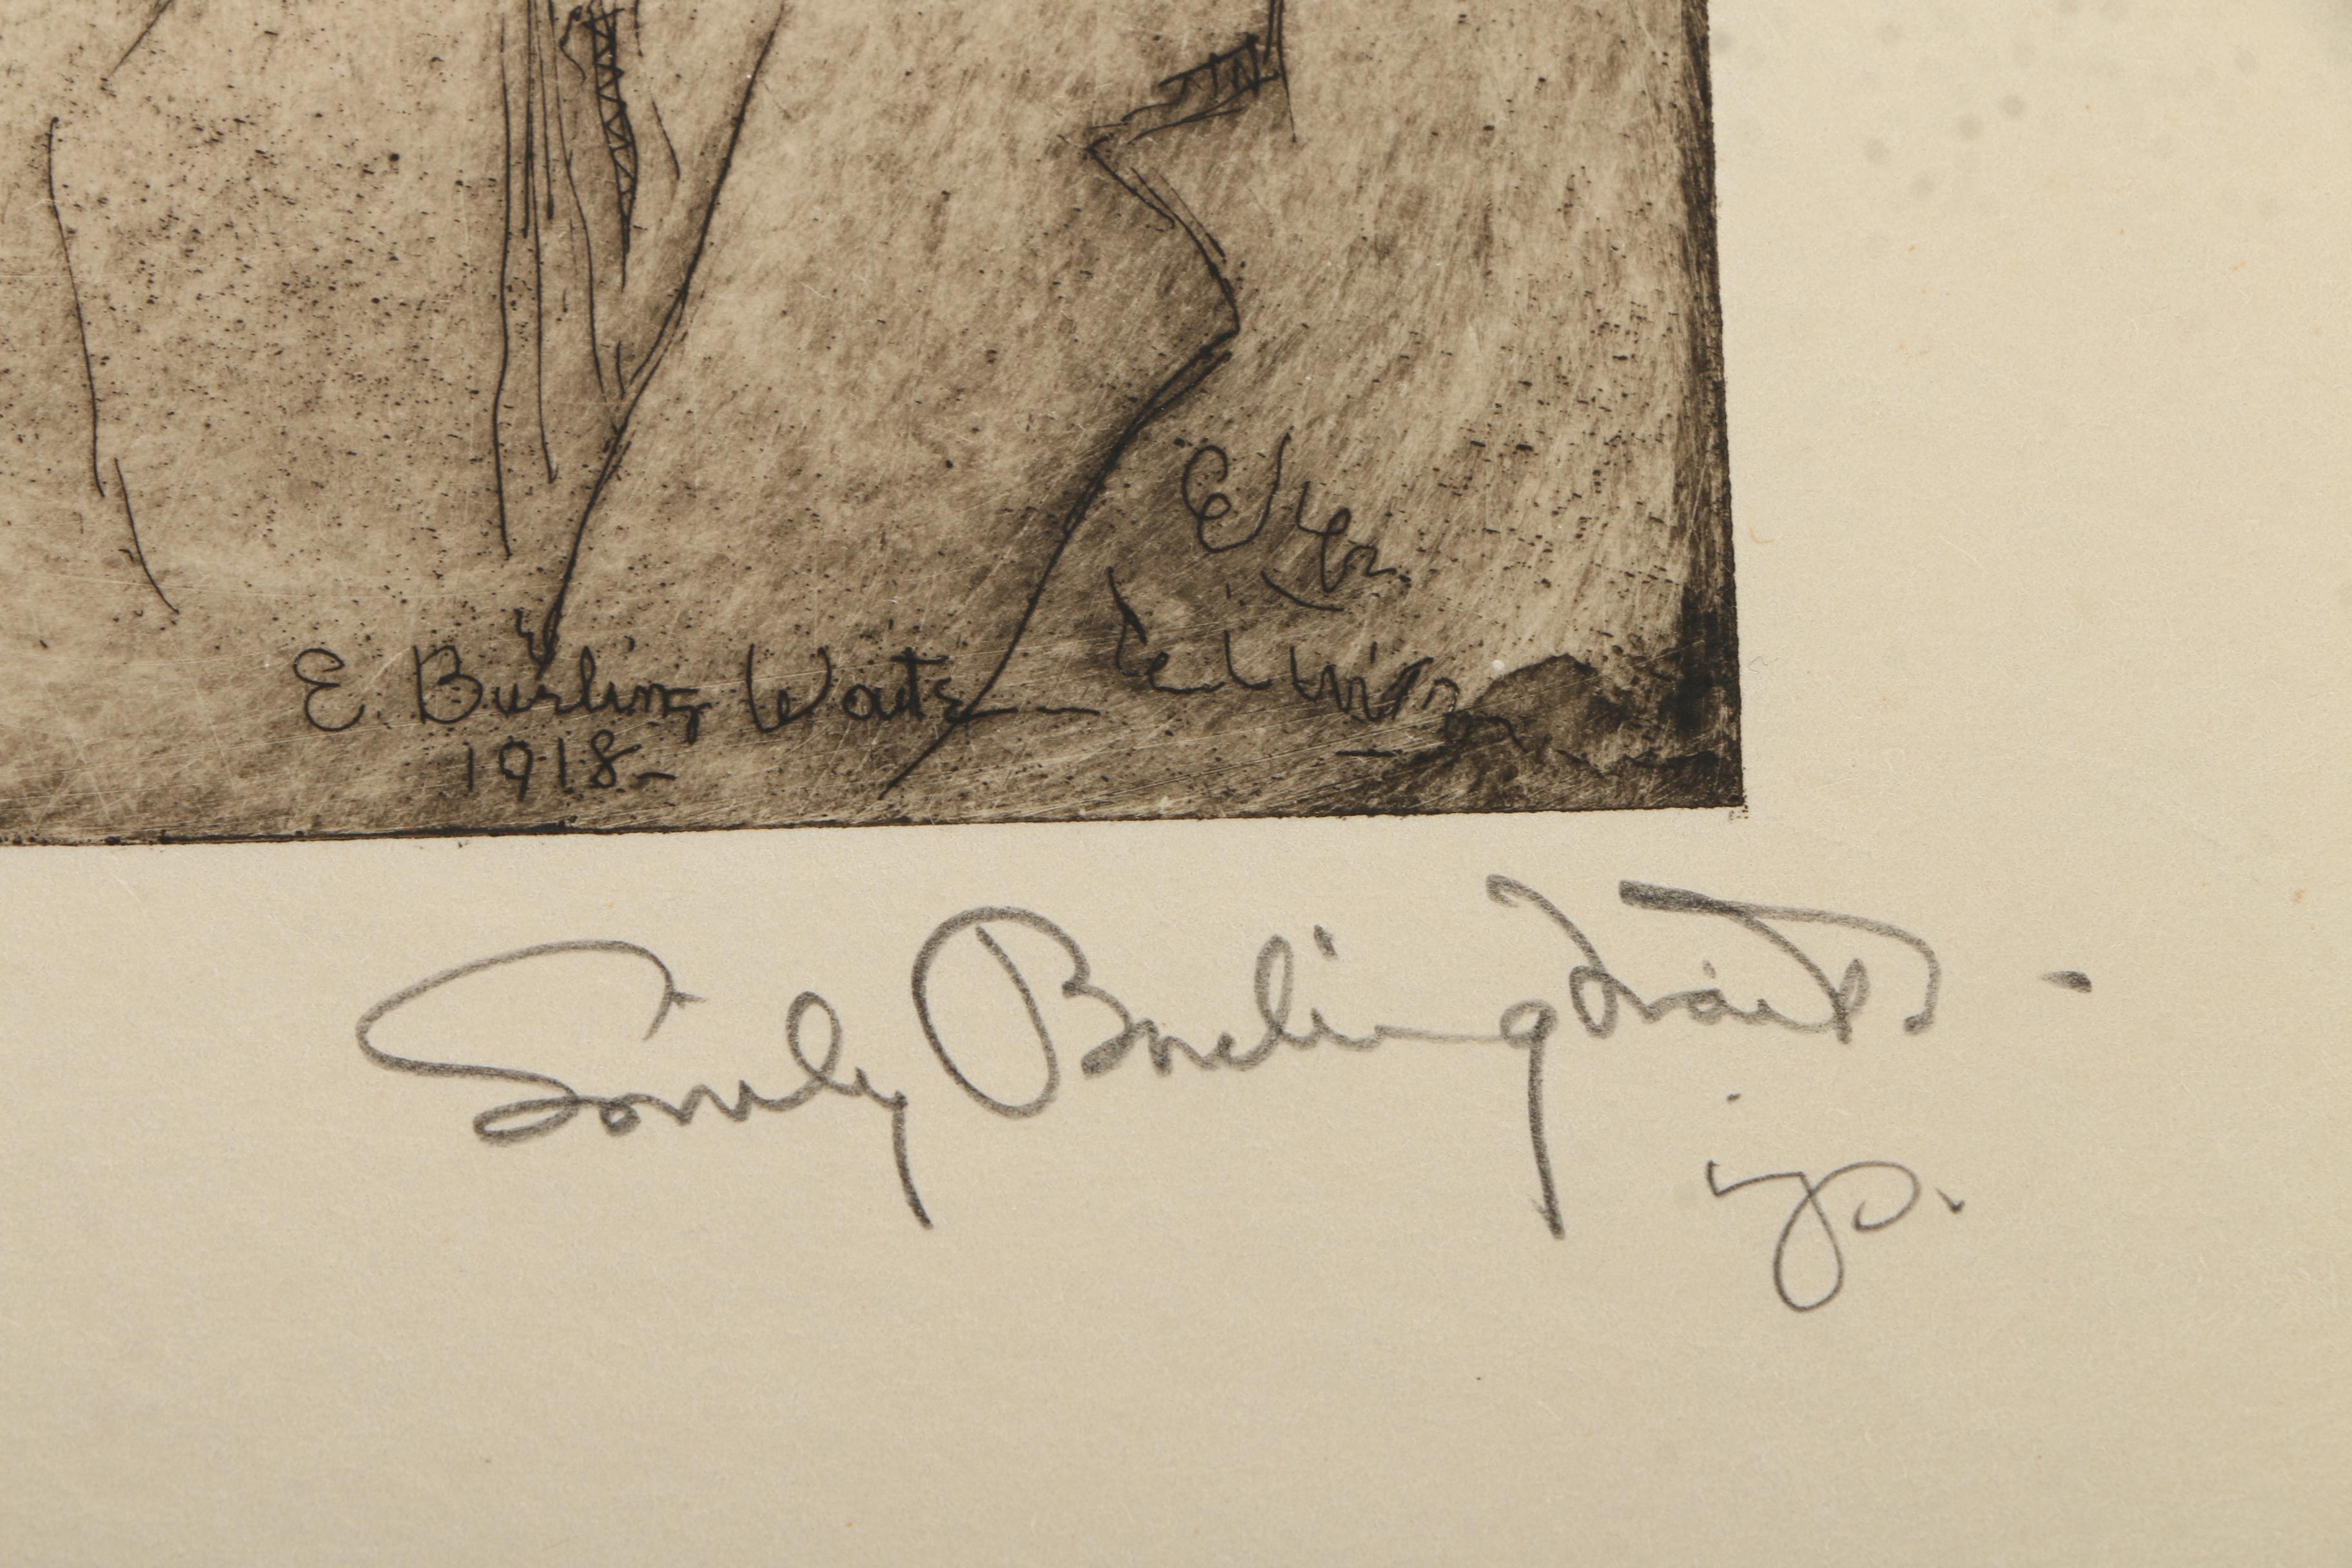 E. Burling Waite
1918-
Emily Burling Waite -
imp.